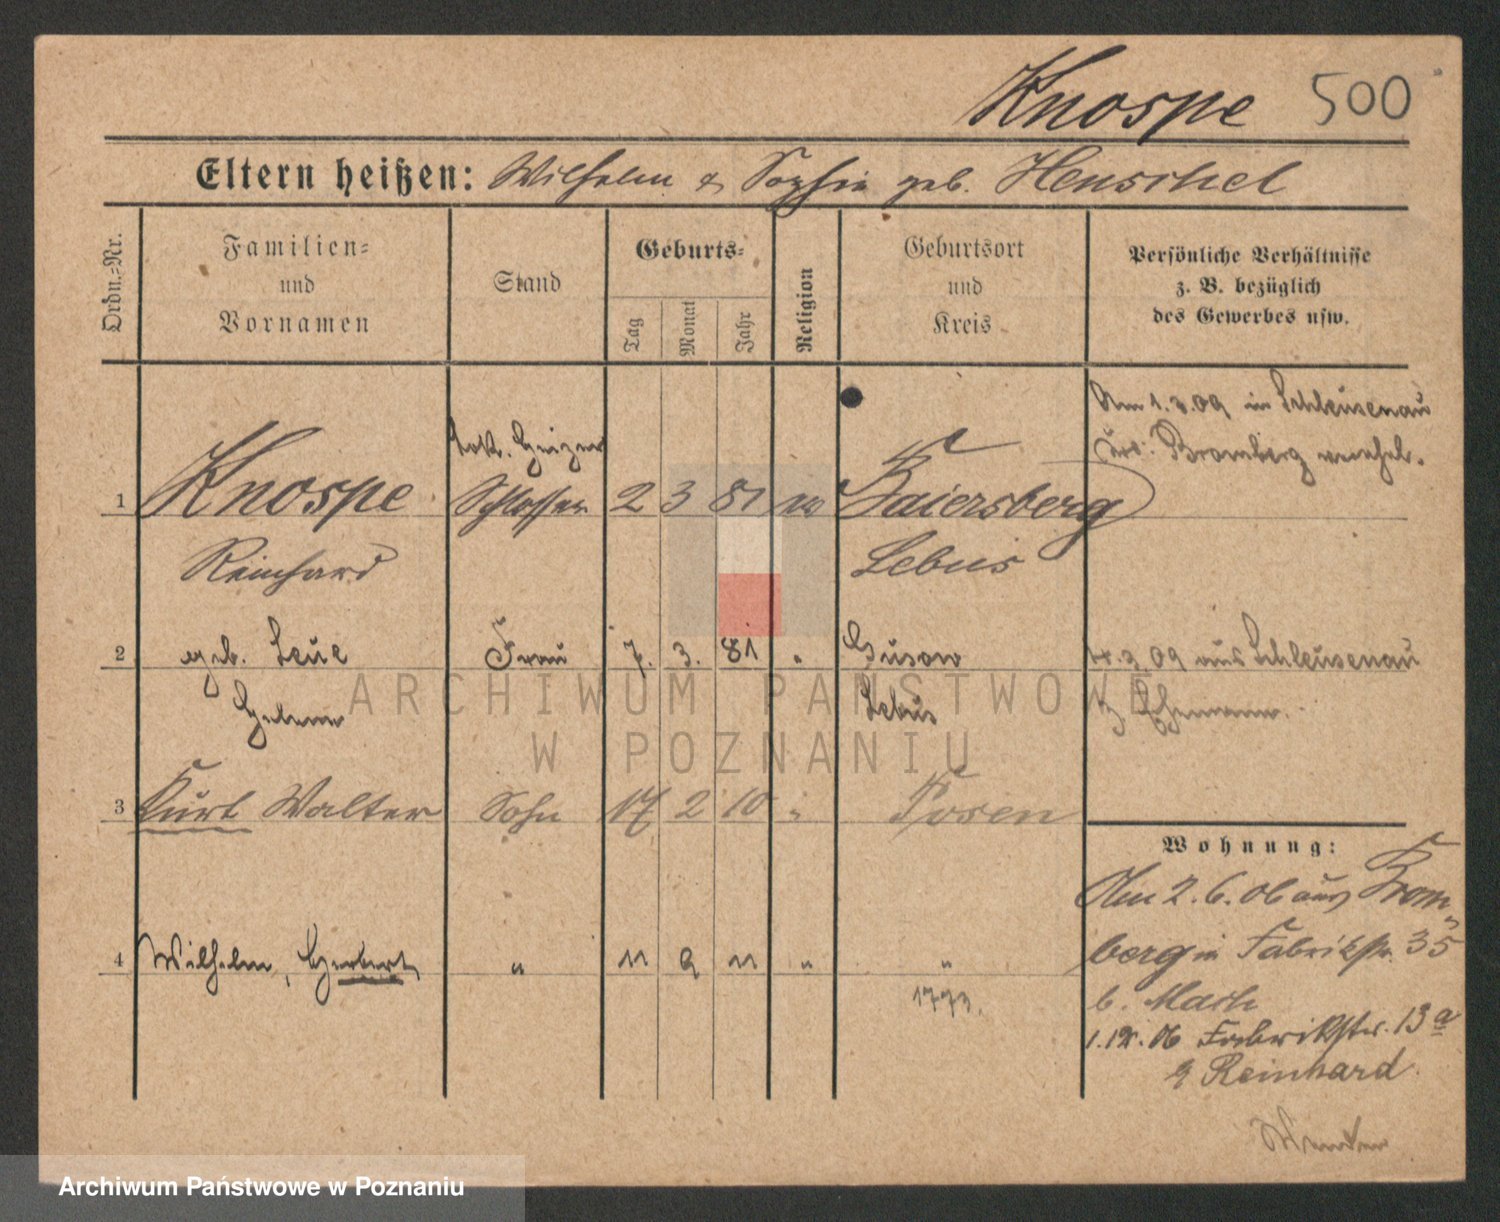 Knospe 500
Eltern heißen: Wilhelm & Sophie geb. Henschel
Ordn.-Nr.
Familien-
und
Vornamen
Stand
Geburts-
Tag
Monat
Jahr
Religion
Geburtsort
und
Kreis
Persönliche Verhältnisse
z. B. bezüglich
des Gewerbes usw.
Am 1.3.09 in Schleusenau
Bromberg
Lok. Heizer
1 Knospe Schlosser 2 3 81 Baiersberg
Reinhard Lebus
2 geb. Leue Frau 7. 3. 81 " Gusow 4.3 09 aus Schleusenau
Helene Lebus z. Ehemann.
3 Kurt Walter Sohn 17 2 10 " Posen
Wohnung:
Am 2.6.06 aus Brom-
berg in Fabrikstr. 35
4 Wilhelm, Herbert " 11 9 11 " "
b.
1.12.06 Fabrikstr. 13a
Reinhard
ARCHIWUM PAŃSTWOWE
W POZNANIU
Archiwum Państwowe w Poznaniu